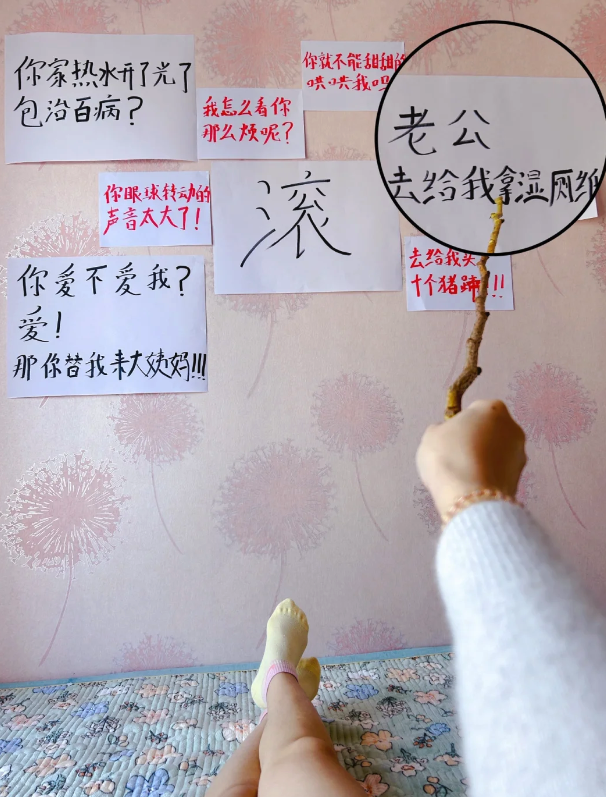 你家热水开了光了
包治百病?
我怎么看你
那么烦呢?
你就不能甜甜的
哄哄我吗
老公
去给我拿湿厕纸
你眼球转动的
声音太大了!
滚
去给我买
十个猪蹄!!!
你爱不爱我?
爱!
那你替我来大姨妈!!!